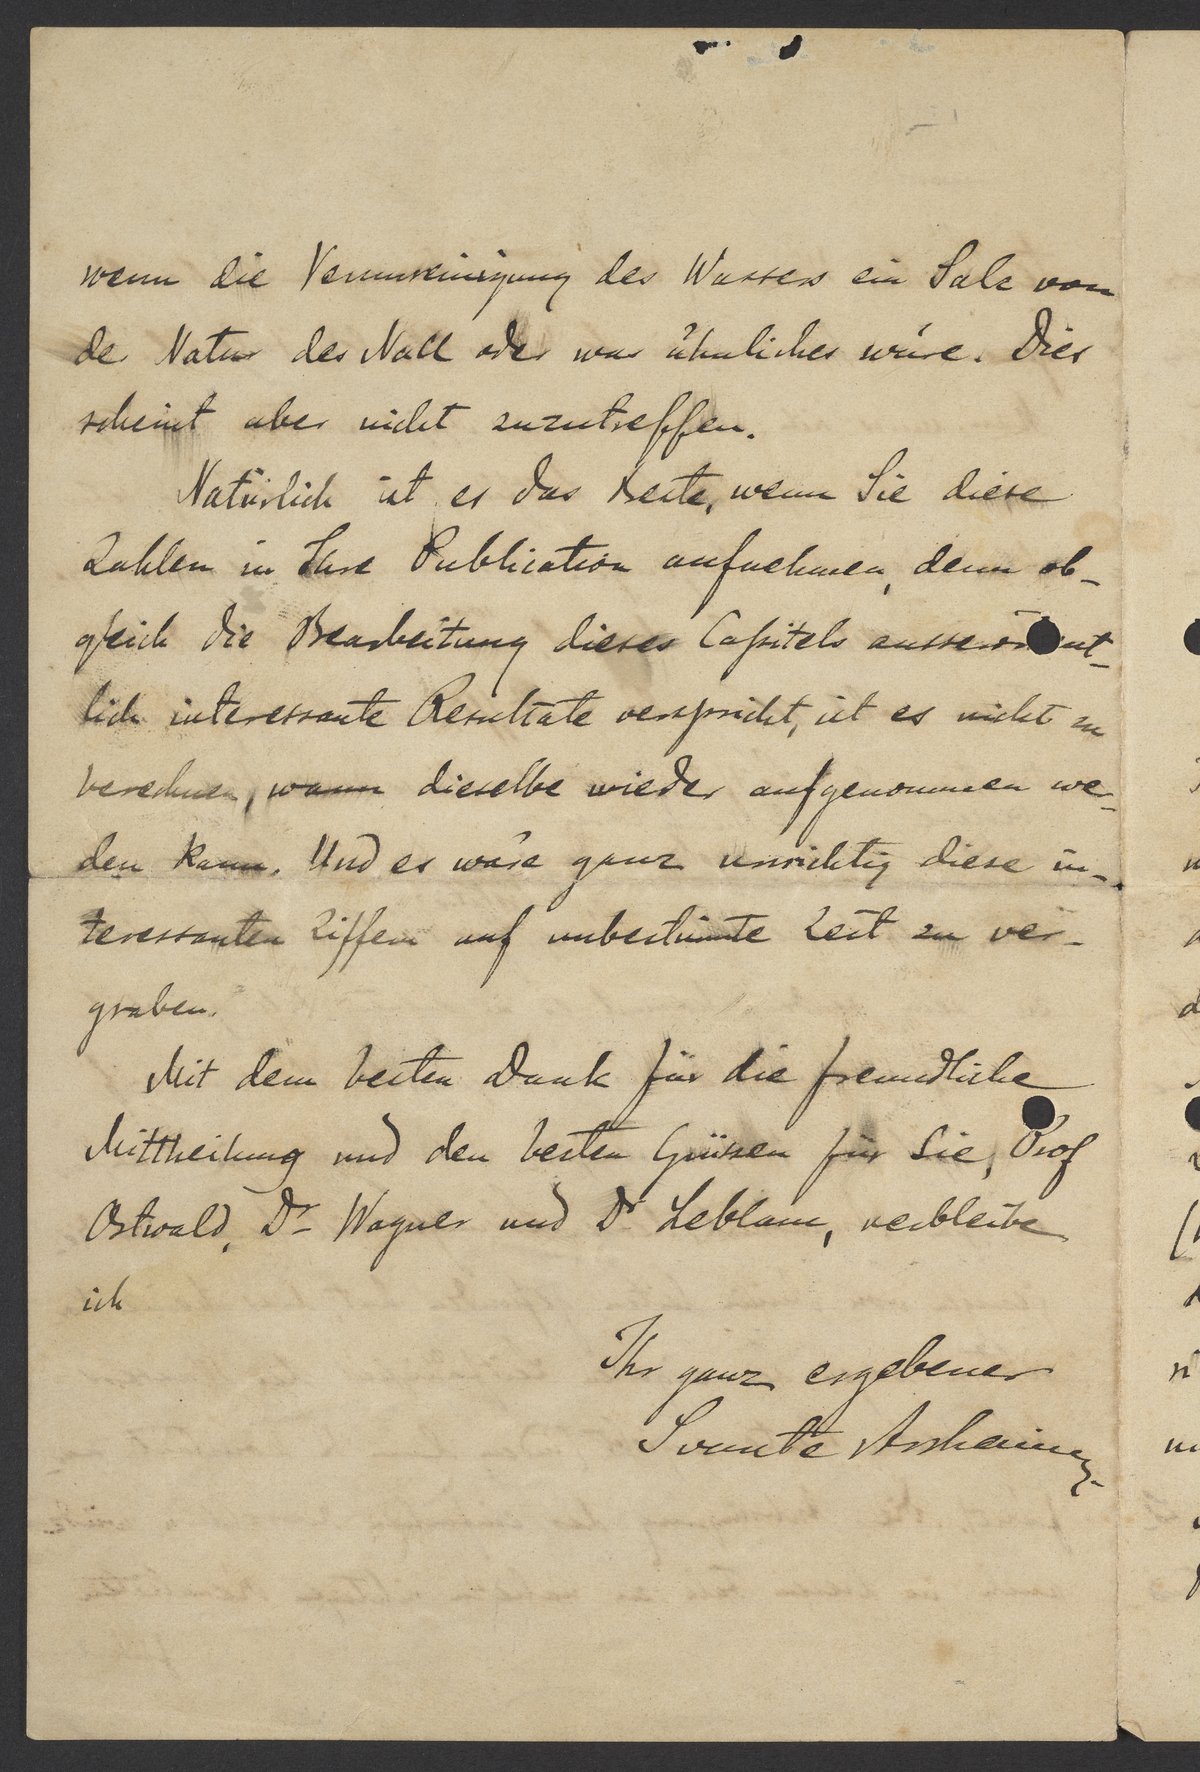 wenn die Verunreinigung des Wassers ein Salz von
der Natur des NaCl oder was ähnliches wäre. Dies
scheint aber nicht zuzutreffen.
Natürlich ist es das Beste, wenn Sie diese
Zahlen in Ihre Publication aufnehmen, denn ob-
gleich die Bearbeitung dieses Capitels ausserordent-
lich interessante Resultate verspricht, ist es nicht zu
berechnen, wann dieselbe wieder aufgenommen wer-
den kann. Und es wäre ganz unrichtig diese in-
teressanten Ziffern auf unbestimmte Zeit zu ver-
graben.
Mit dem besten Dank für die freundliche
Mittheilung und den besten Grüssen für Sie, Prof
Ostwald, Dr Wagner und Dr Leblanc, verbleibe
ich
Ihr ganz ergebener
Svante Arrhenius.